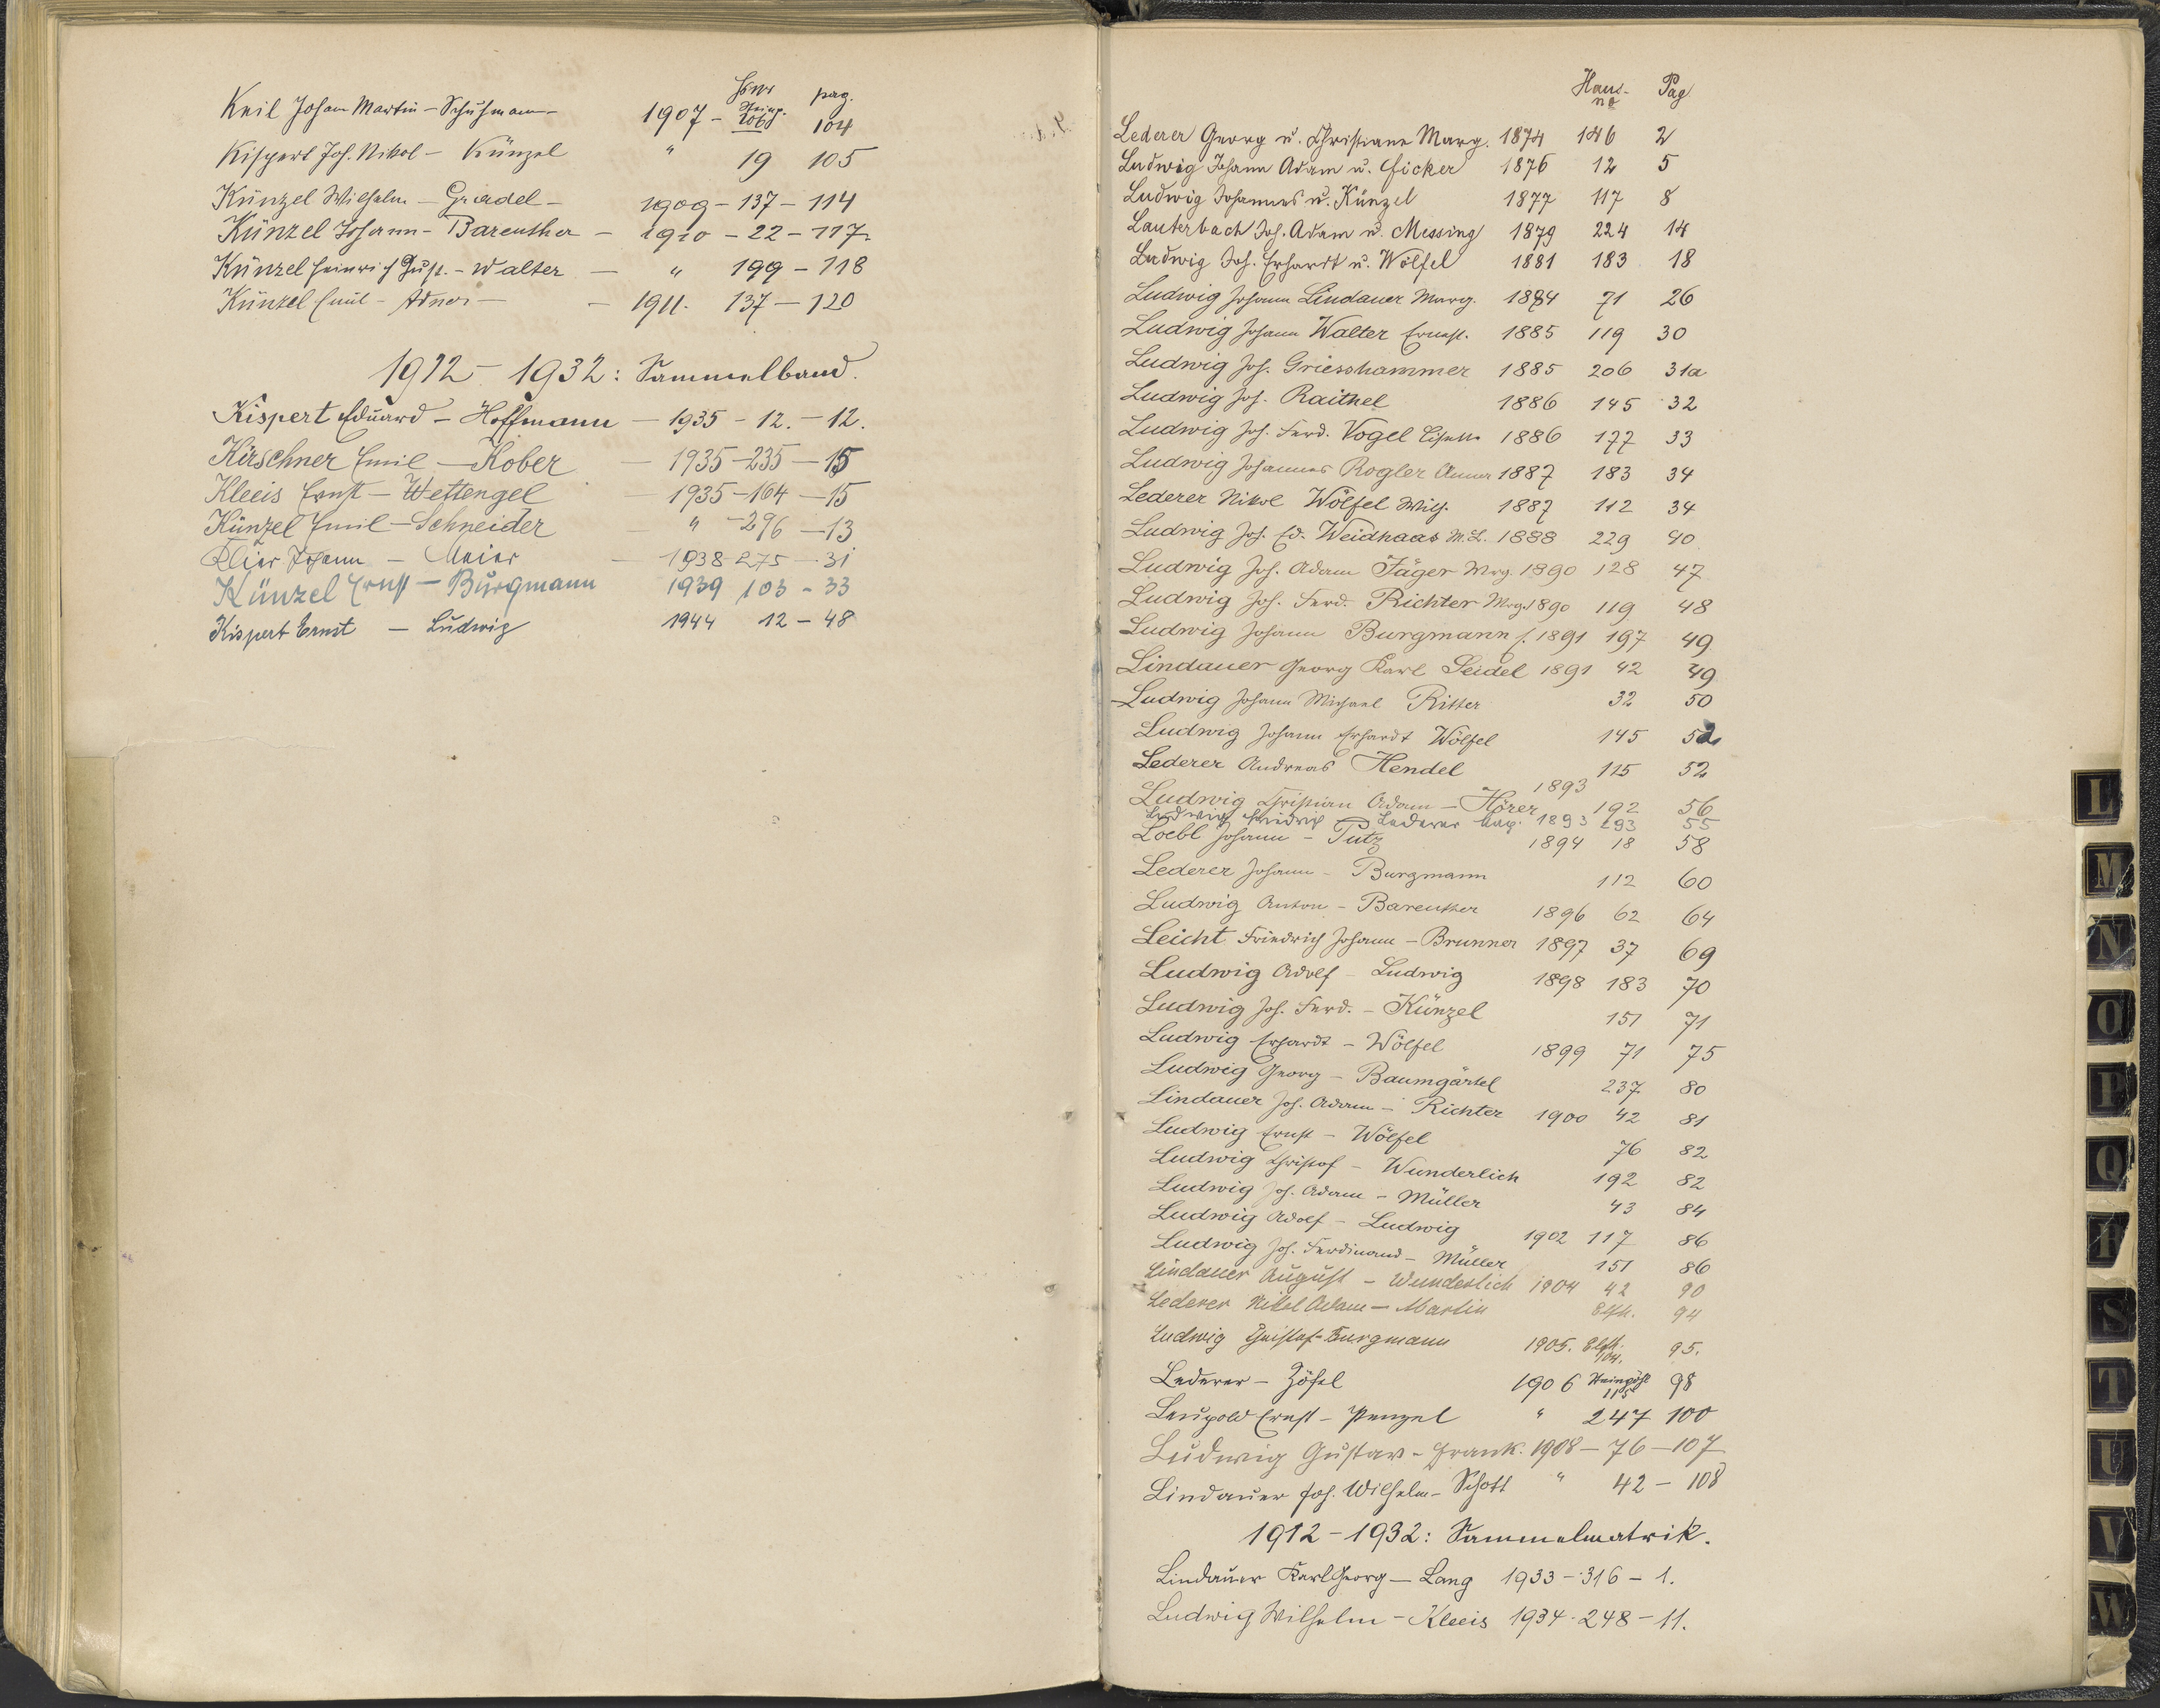 HsNr pag.
Keil Johann Martin – Schuhmann – 1907 – 104
Kispert Joh. Nikol – Künzel " 19 105
Künzel Wilhelm – Gradel – 1909 – 137 – 114
Künzel Johann – Bareuther – 1910 – 22 – 117
Künzel Heinrich Gust. – Walter – " 199 – 118
Künzel Emil – Adner – – 1911. 137 – 120
1912 – 1932: Sammelband.
Kispert Eduard – Hoffmann – 1935 – 12. – 12.
Kirschner Emil – Kober – 1935 – 235 – 15
Kleeis Ernst – Wettengel – 1935 – 164 – 15
Künzel Emil – Schneider – " – 296 – 13
Klier Johann – Meier – 1938 – 275 – 31
Künzel Ernst – Burgmann 1939 103 – 33
Kispert Ernst – Ludwig 1944 12 – 48
Haus- Pag
no
Lederer Georg u. Christiane Marg. 1874 146 2
Ludwig Johann Adam u. Ficker 1876 12 5
Ludwig Johannes u. Künzel 1877 117 8
Lauterbach Joh. Adam u. Messing 1879 224 14
Ludwig Joh. Erhardt u. Wölfel 1881 183 18
Ludwig Johann Lindauer Marg. 1884 71 26
Ludwig Johann Walter Ernest. 1885 119 30
Ludwig Joh. Griesshammer 1885 206 31a
Ludwig Joh. Raithel 1886 145 32
Ludwig Joh. Ferd. Vogel Lisette 1886 177 33
Ludwig Johannes Rogler Anna 1887 183 34
Lederer Nikol Wölfel Wilh. 1887 112 34
Ludwig Joh. Ed. Weidhaas M.L. 1888 229 40
Ludwig Joh. Adam Jäger Mrg. 1890 128 47
Ludwig Joh. Ferd. Richter Mrg. 1890 119 48
Ludwig Johann Burgmann f. 1891 197 49
Lindauer Georg Karl Seidel 1891 42 49
Ludwig Johann Michael Ritter 32 50
Ludwig Johann Erhardt Wölfel 145 52
Lederer Andreas Hendel 115 52
1893
Ludwig Christian Adam – Hörer 192 56
Ludwig Friedrich – Lederer Marg. 1893 293 55
Loebl Johann – Putz 1894 18 58
Lederer Johann – Burgmann 112 60
Ludwig Anton – Bareuther 1896 62 64
Leicht Friedrich Johann – Brunner 1897 37 69
Ludwig Adolf – Ludwig 1898 183 70
Ludwig Joh. Ferd. – Künzel 151 71
Ludwig Erhardt – Wölfel 1899 71 75
Ludwig Georg – Baumgärtel 237 80
Lindauer Joh. Adam – Richter 1900 42 81
Ludwig Ernst – Wölfel 76 82
Ludwig Christof – Wunderlich 192 82
Ludwig Joh. Adam – Müller 43 84
Ludwig Adolf – Ludwig 1902 117 86
Ludwig Joh. Ferdinand – Müller 151 86
Lindauer August – Wunderlich 1904 42 90
Lederer Nikol Adam – Martin 94
Ludwig Christof – Burgmann 1905. 104. 95.
Lederer – Zöfel 1906 Steinpöhl 98
115
Leupold Ernst – Penzel " 247 100
Ludwig Gustav – Frank. 1908 – 76 – 107
Lindauer Joh. Wilhelm – Schott " 42 – 108
1912 – 1932: Sammelmatrik.
Lindauer Karl Georg – Lang 1933 – 316 – 1.
Ludwig Wilhelm – Kleeis 1934 – 248 – 11.
L
M
N
O
P
Q
R
S
T
U
V
W